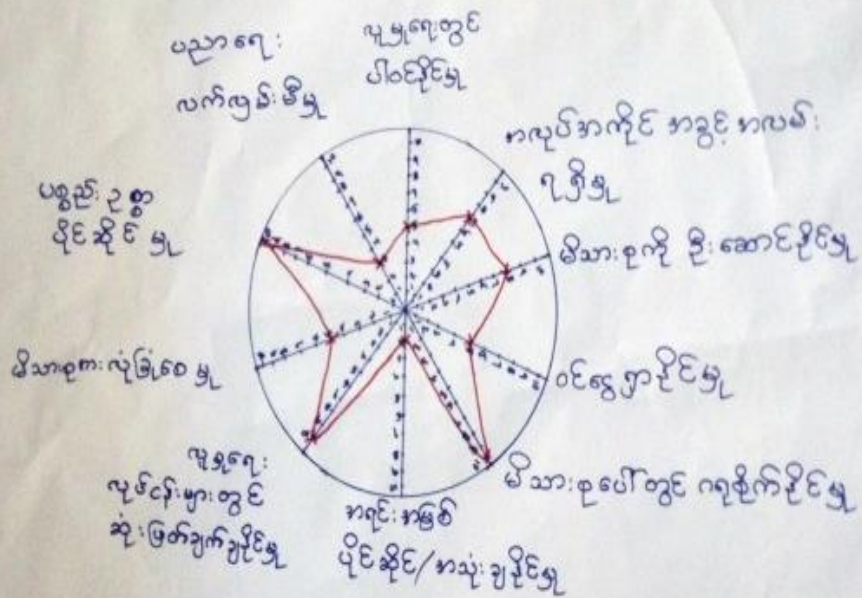 ပညာရေး
လက်လှမ်းမီမှု
လူမှုရေးတွင်
ပါဝင်နိုင်မှု
အလုပ်အကိုင် အခွင့်အလမ်း
ရရှိမှု
မိသားစုကို ဦးဆောင်နိုင်မှု
ဝင်ငွေရှာနိုင်မှု
မိသားစုပေါ်တွင် ဂရုစိုက်နိုင်မှု
အရင်းအမြစ်
ပိုင်ဆိုင်/အသုံးချနိုင်မှု
လူမှုရေး
လုပ်ငန်းများတွင်
ဆုံးဖြတ်ချက်ချနိုင်မှု
မိသားစုအား လုံခြုံစေမှု
ပစ္စည်းဥစ္စာ
ပိုင်ဆိုင်မှု